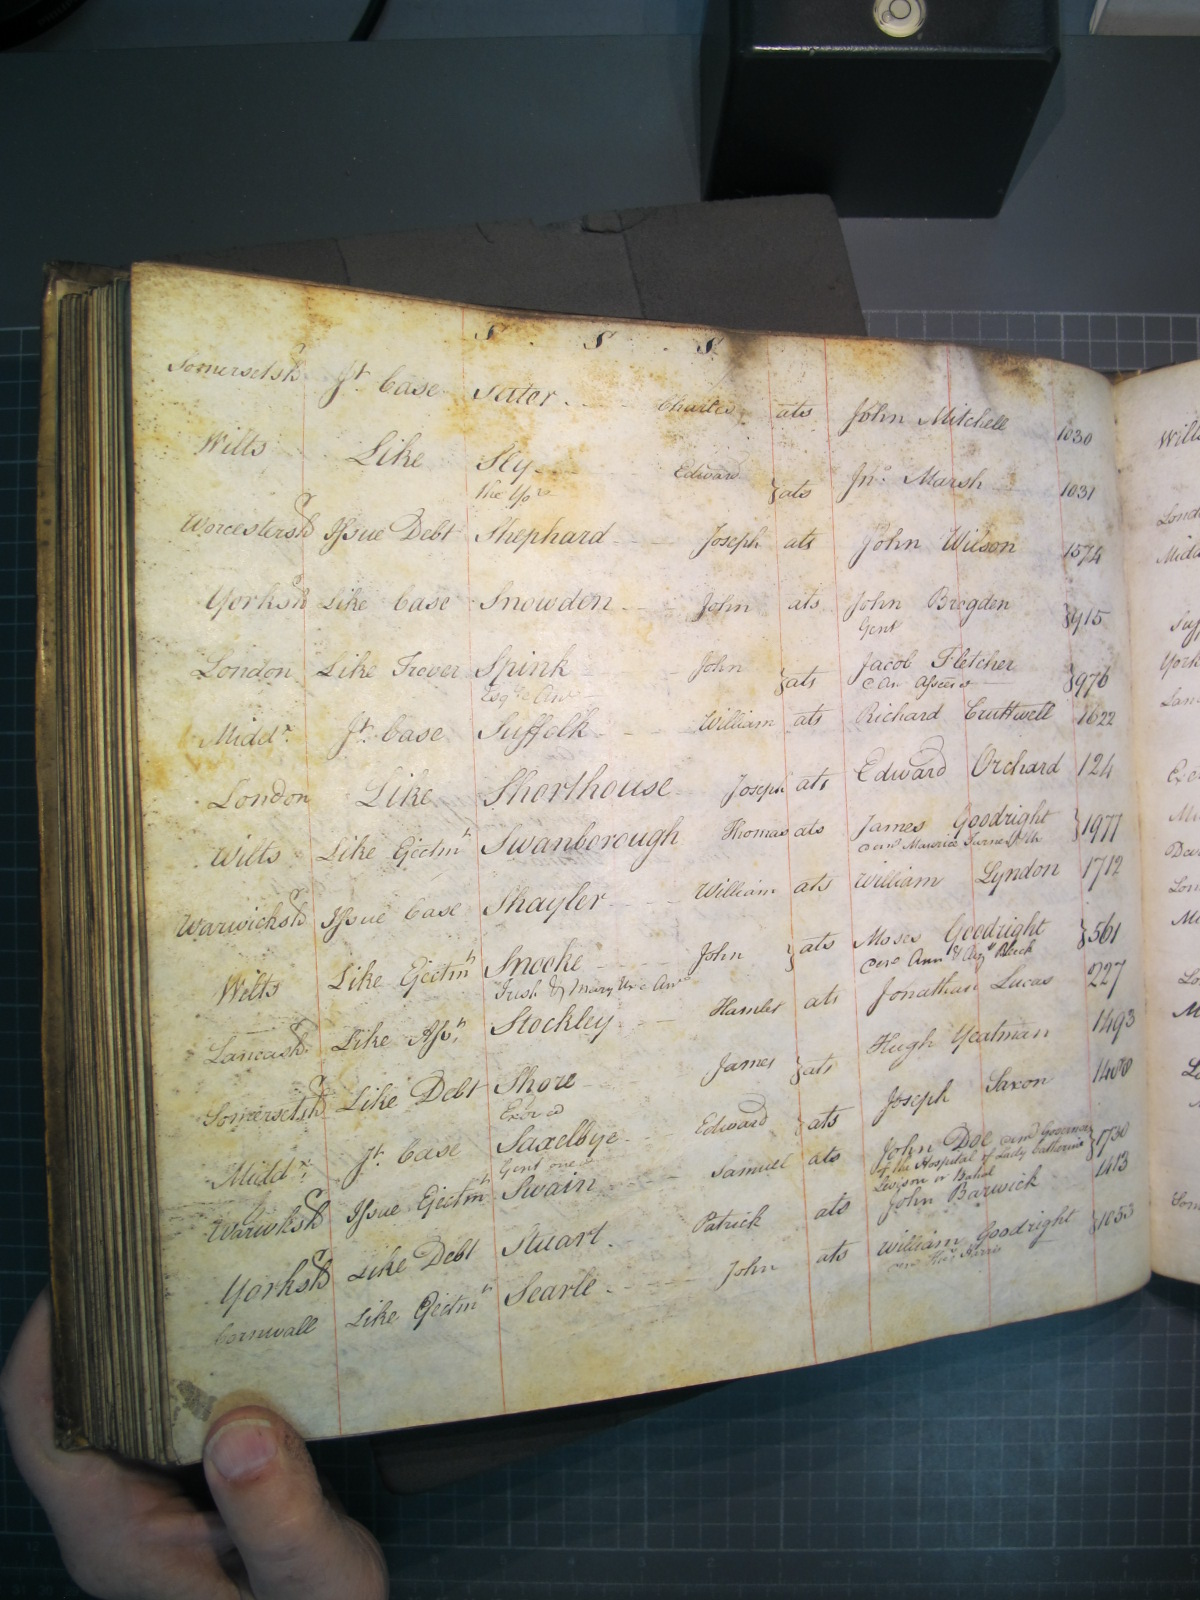 S . S . S
Somersetsh Jt. Case Suter Charles ats John Mitchell 1030
Wilts Like Sly Edward } ats Jno. Marsh 1031
Worcestersh Issue Debt Shephard Joseph ats John Wilson 1574
Yorksh Like Case Snowden John ats John Brogden } 915
Gent
London Like Trover Spink John } ats Jacob Fletcher } 976
Esqre
Middx. Jt. Case Suffolk William ats Richard Cruttwell 1622
London Like Shorthouse Joseph ats Edward Orchard 124
Wilts Like Ejectmt Swanborough Thomas ats James Goodright } 1977
Warwicksh Issue Case Shayler William ats William Lyndon 1712
Wilts Like Ejectmt Snooke John } ats Moses Goodright } 561
Lancash. Like Asst. Stockley Hamlet ats Jonathan Lucas 227
Somersetsh Like Debt Shore James } ats Hugh Yeatman 1493
Middx. Jt. Case Saxelbye Edward } ats Joseph Saxon 1400
Gent one
Warwksh Issue Ejectmt Swain Samuel ats John Doe dem Governors } 1730
of the Hospital of Lady Catherine
Yorksh Like Debt Stuart Patrick ats John Barwick 1413
Cornwall Like Ejectmt Searle John ats William Goodright } 1053
Wilts